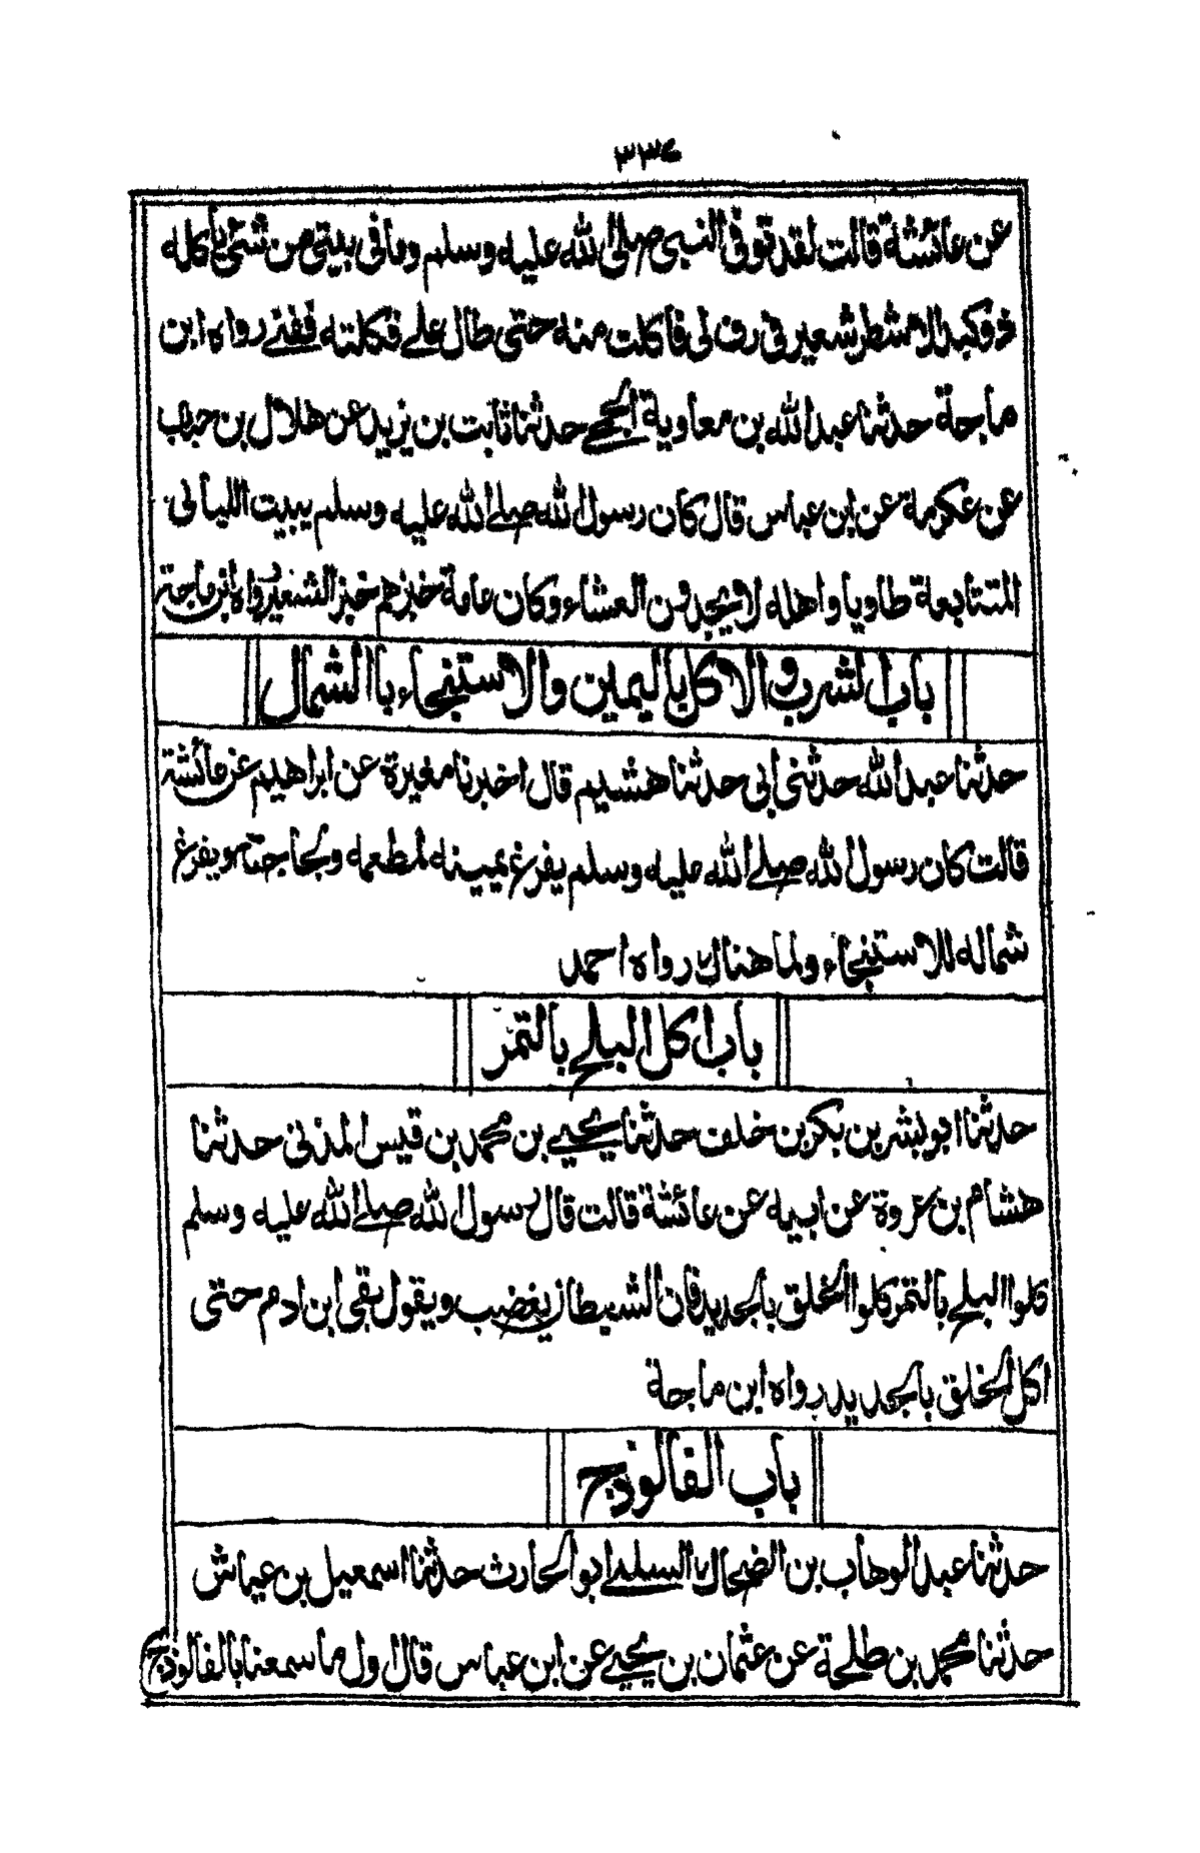 ٣٣٤
عن عائشة قالت لقد توفى النبى صلى الله عليه وسلم وما فى بيتى من شئ ياكله
ذو كبد الا شطر شعير فى رف لى فاكلت منه حتى طال على فكلته ففنى رواه ابن
ماجة حدثنا عبد الله بن معاوية الجمحى حدثنا ثابت بن يزيد عن هلال بن خباب
عن عكرمة عن ابن عباس قال كان رسول الله صلى الله عليه وسلم يبيت الليالى
المتتابعة طاويا واهله لا يجدون العشاء وكان عامة خبزهم خبز الشعير رواه ابن ماجة
باب الشرب والاكل باليمين والاستنجاء باالشمال
حدثنا عبد الله حدثنى ابى حدثنا هشيم قال اخبرنا مغيرة عن ابراهيم عن عائشة
قالت كان رسول الله صلى الله عليه وسلم يفرغ يمينه لمطعمه ولحاجته ويفرغ
شماله للاستنجاء ولما هناك رواه احمد
باب اكل البلح بالتمر
حدثنا ابو بشر بن بكر بن خلف حدثنا يحيى بن محمد بن قيس المدنى حدثنا
هشام بن عروة عن ابيه عن عائشة قالت قال رسول الله صلى الله عليه وسلم
كلوا البلح بالتمر كلوا الخلق بالجديد فان الشيطان يغضب ويقول بقى ابن ادم حتى
اكل الخلق بالجديد رواه ابن ماجة
باب الفالوذج
حدثنا عبد الوهاب بن الضحاك السلمى ابو الحارث حدثنا اسمعيل بن عياش
حدثنا محمد بن طلحة عن عثمان بن يحيى عن ابن عباس قال اول ما سمعنا بالفالوذج